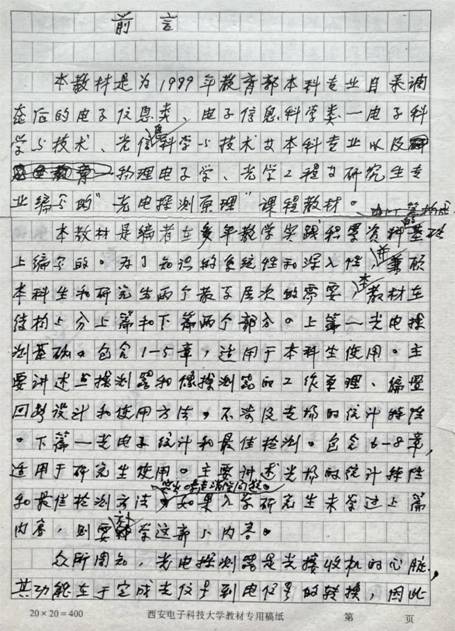 前 言
本教材是为1999年教育部本科专业目录调
整后的电子信息类、电子信息科学类—电子科
学与技术、光信息科学与技术等本科专业以及
物理电子学、光学工程等研究生专
业编写的"光电探测原理"课程教材。
本教材是编者在多年教学实践积累资料的基础
上编写的。为了知识的系统性和深入性,兼顾
本科生和研究生两个教学层次的需要,本教材在
结构上分上篇和下篇两个部分。上篇—光电探
测基础。包含1-5章,适用于本科生使用。主
要讲述点探测器和像探测器的工作原理、偏置
回路设计和使用方法。不涉及光场的统计特性
。下篇—光电子统计和最佳检测。包含6-8章,
适用于研究生使用。主要讲述光场的统计特性
和最佳检测方法。如果入学研究生未学过上篇
内容,则要补学这部分内容。
众所周知,光电探测器是光接收机的心脏,
其功能在于完成光信号到电信号的转换,因此
20×20=400 西安电子科技大学教材专用稿纸 第 页